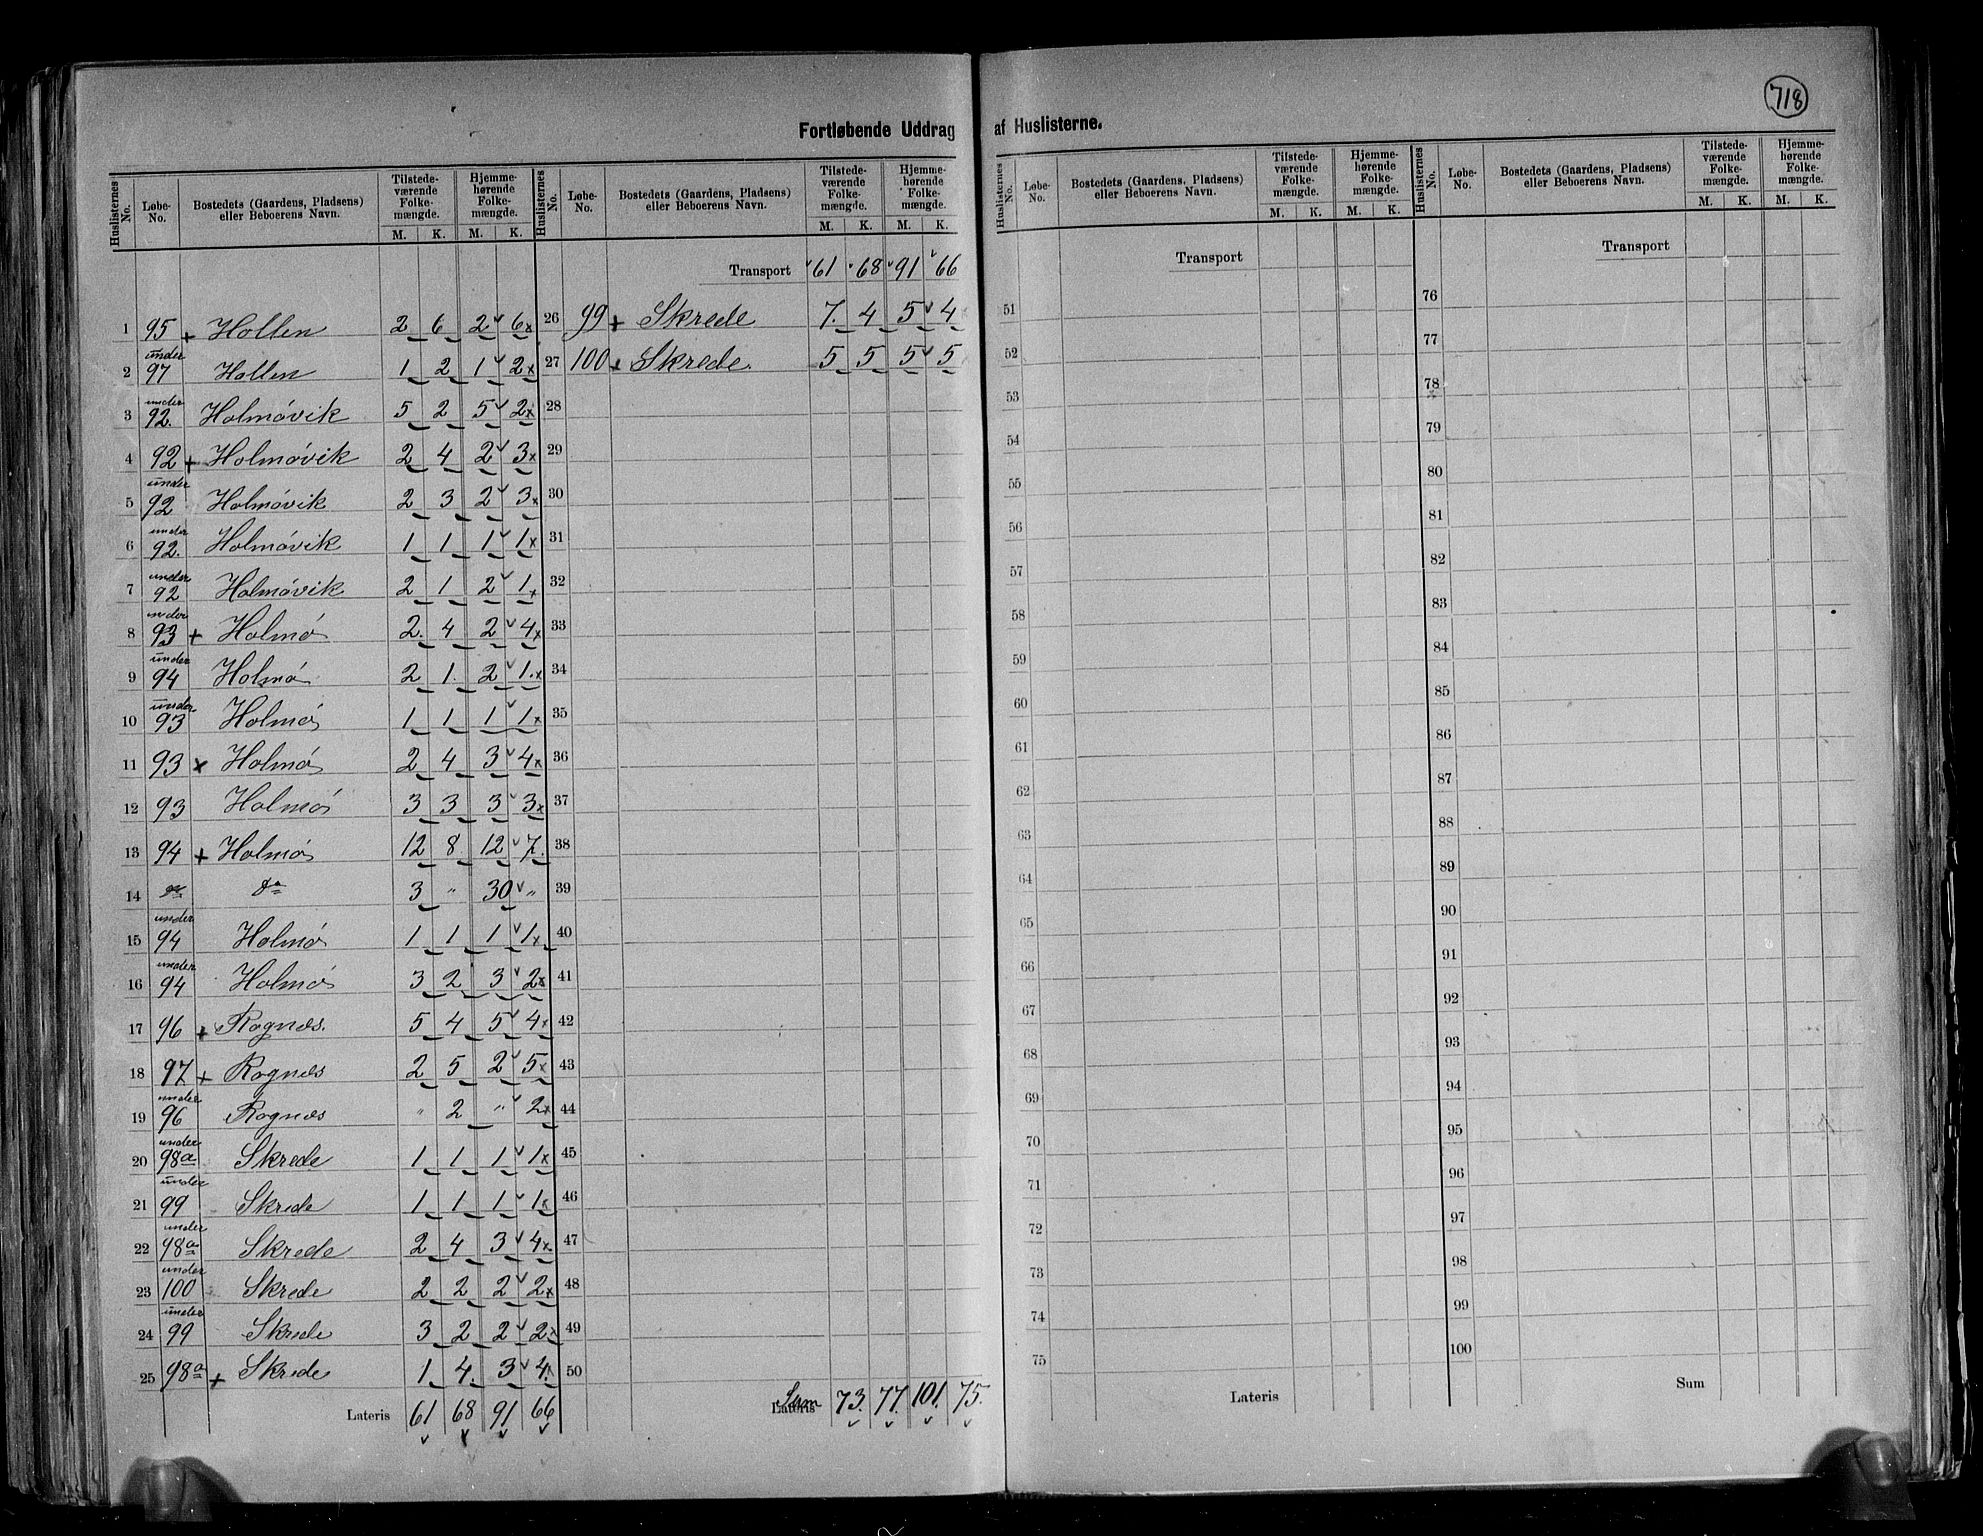 718
Fortløbende Uddrag af Huslisterne.
Huslisternes No. | Løbe-No. | Bostedets (Gaardens, Pladsens) eller Beboerens Navn. | Tilstedeværende Folkemængde. M. K. | Hjemmehørende Folkemængde. M. K.
1 95 + Hollen 2 6 2 6
2 under 97 Hollen 1 2 1 2
3 under 92. Holmøvik 5 2 5 2
4 92 + Holmøvik 2 4 2 3
5 under 92 Holmøvik 2 3 2 3
6 under 92. Holmøvik 1 1 1 1
7 under 92 Holmøvik 2 1 2 1
8 under 93 + Holmø 2 4 2 4
9 under 94 Holmø 2 1 2 1
10 under 93 Holmø 1 1 1 1
11 93 x Holmø 2 4 3 4
12 93 Holmø 3 3 3 3
13 94 + Holmø 12 8 12 7
14 do do 3 " 30 "
15 under 94 Holmø 1 1 1 1
16 under 94 Holmø 3 2 3 2
17 96 + Rognæs. 5 4 5 4
18 97 + Rognæs 2 5 2 5
19 under 96 Rognæs " 2 " 2
20 under 98a Skrede 1 1 1 1
21 under 99 Skrede 1 1 1 1
22 under 98a Skrede 2 4 3 4
23 under 100 Skrede 2 2 2 2
24 under 99 Skrede 3 2 2 2
25 98a + Skrede 1 4 3 4
Lateris 61 68 91 66
Huslisternes No. | Løbe-No. | Bostedets (Gaardens, Pladsens) eller Beboerens Navn. | Tilstedeværende Folkemængde. M. K. | Hjemmehørende Folkemængde. M. K.
Transport 61 68 91 66
26 99 + Skrede 7 4 5 4
27 100 + Skrede. 5 5 5 5
28
29
30
31
32
33
34
35
36
37
38
39
40
41
42
43
44
45
46
47
48
49
50
Lateris Sum 73. 77. 101. 75.
Huslisternes No. | Løbe-No. | Bostedets (Gaardens, Pladsens) eller Beboerens Navn. | Tilstedeværende Folkemængde. M. K. | Hjemmehørende Folkemængde. M. K.
Transport
51
52
53
54
55
56
57
58
59
60
61
62
63
64
65
66
67
68
69
70
71
72
73
74
75
Lateris
Huslisternes No. | Løbe-No. | Bostedets (Gaardens, Pladsens) eller Beboerens Navn. | Tilstedeværende Folkemængde. M. K. | Hjemmehørende Folkemængde. M. K.
Transport
76
77
78
79
80
81
82
83
84
85
86
87
88
89
90
91
92
93
94
95
96
97
98
99
100
Sum